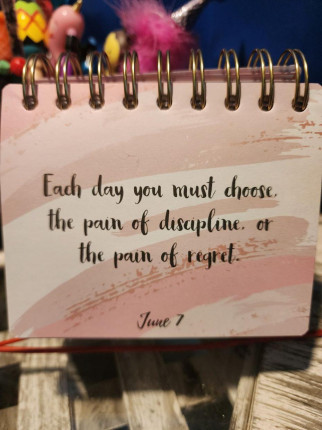 Each day you must choose.
the pain of discipline. or
the pain of regret.
June 7